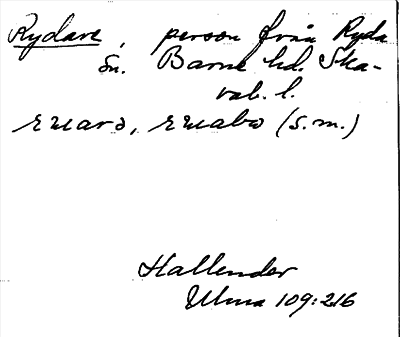 Rydare, person från Ryda
sn. Barne hd. Ska-
rab. l.
(s.m.)
Hallender
Ulma 109:216